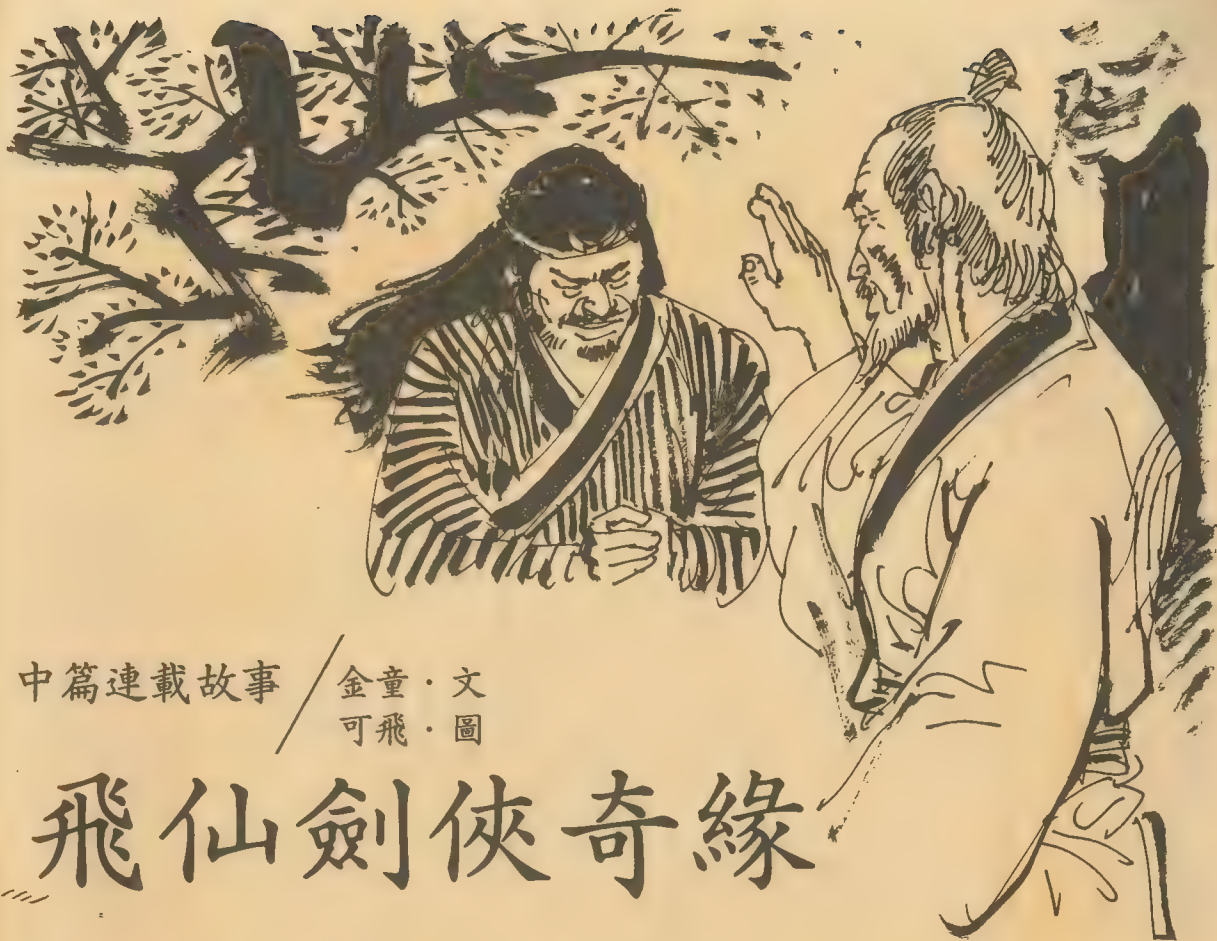 中篇連載故事
金童·文
可飛·圖
飛仙劍俠奇緣